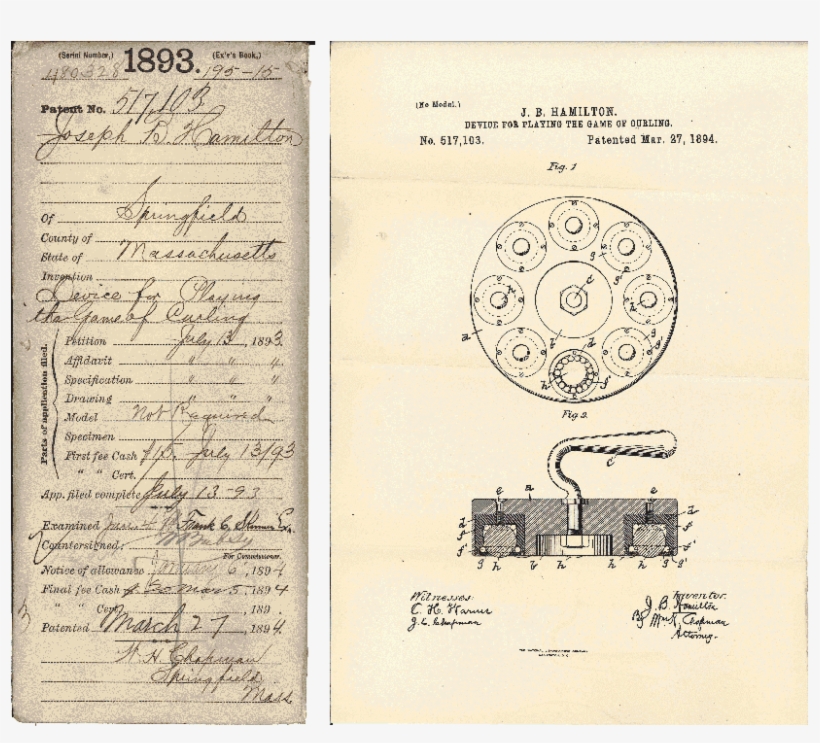 (Serial Number,) 1893. (Ex'r's Book,)
480328 195-15
Patent No. 517,103
Joseph B. Hamilton
Of Springfield
County of
State of Massachusetts
Invention
Device for Playing
the Game of Curling
Parts of application filed.
Petition July 13, 1893.
Affidavit " " "
Specification " " "
Drawing " " "
Model Not Required
Specimen
First fee Cash $15. July 13/93
" " Cert.
App. filed complete July 13-93
Examined Frank C. Skinner Ex.
Countersigned:
For Commissioner.
Notice of allowance January 6, 1894
Final fee Cash $20 Mar 5, 1894
" " Cert , 189
Patented March 27, 1894.
W. H. Chapman
Springfield
Mass
(No Model.)
J. B. HAMILTON.
DEVICE FOR PLAYING THE GAME OF CURLING.
No. 517,103. Patented Mar. 27, 1894.
Fig. 1
c
g
g
h
a
b
d
g
g'
h
f'
Fig 2.
c
e a e
d d
f f
f' f'
g h b h h g g'
Witnesses:
C. H.
J. C. Chapman
Inventor.
J. B. Hamilton
By Chapman
Attorney.